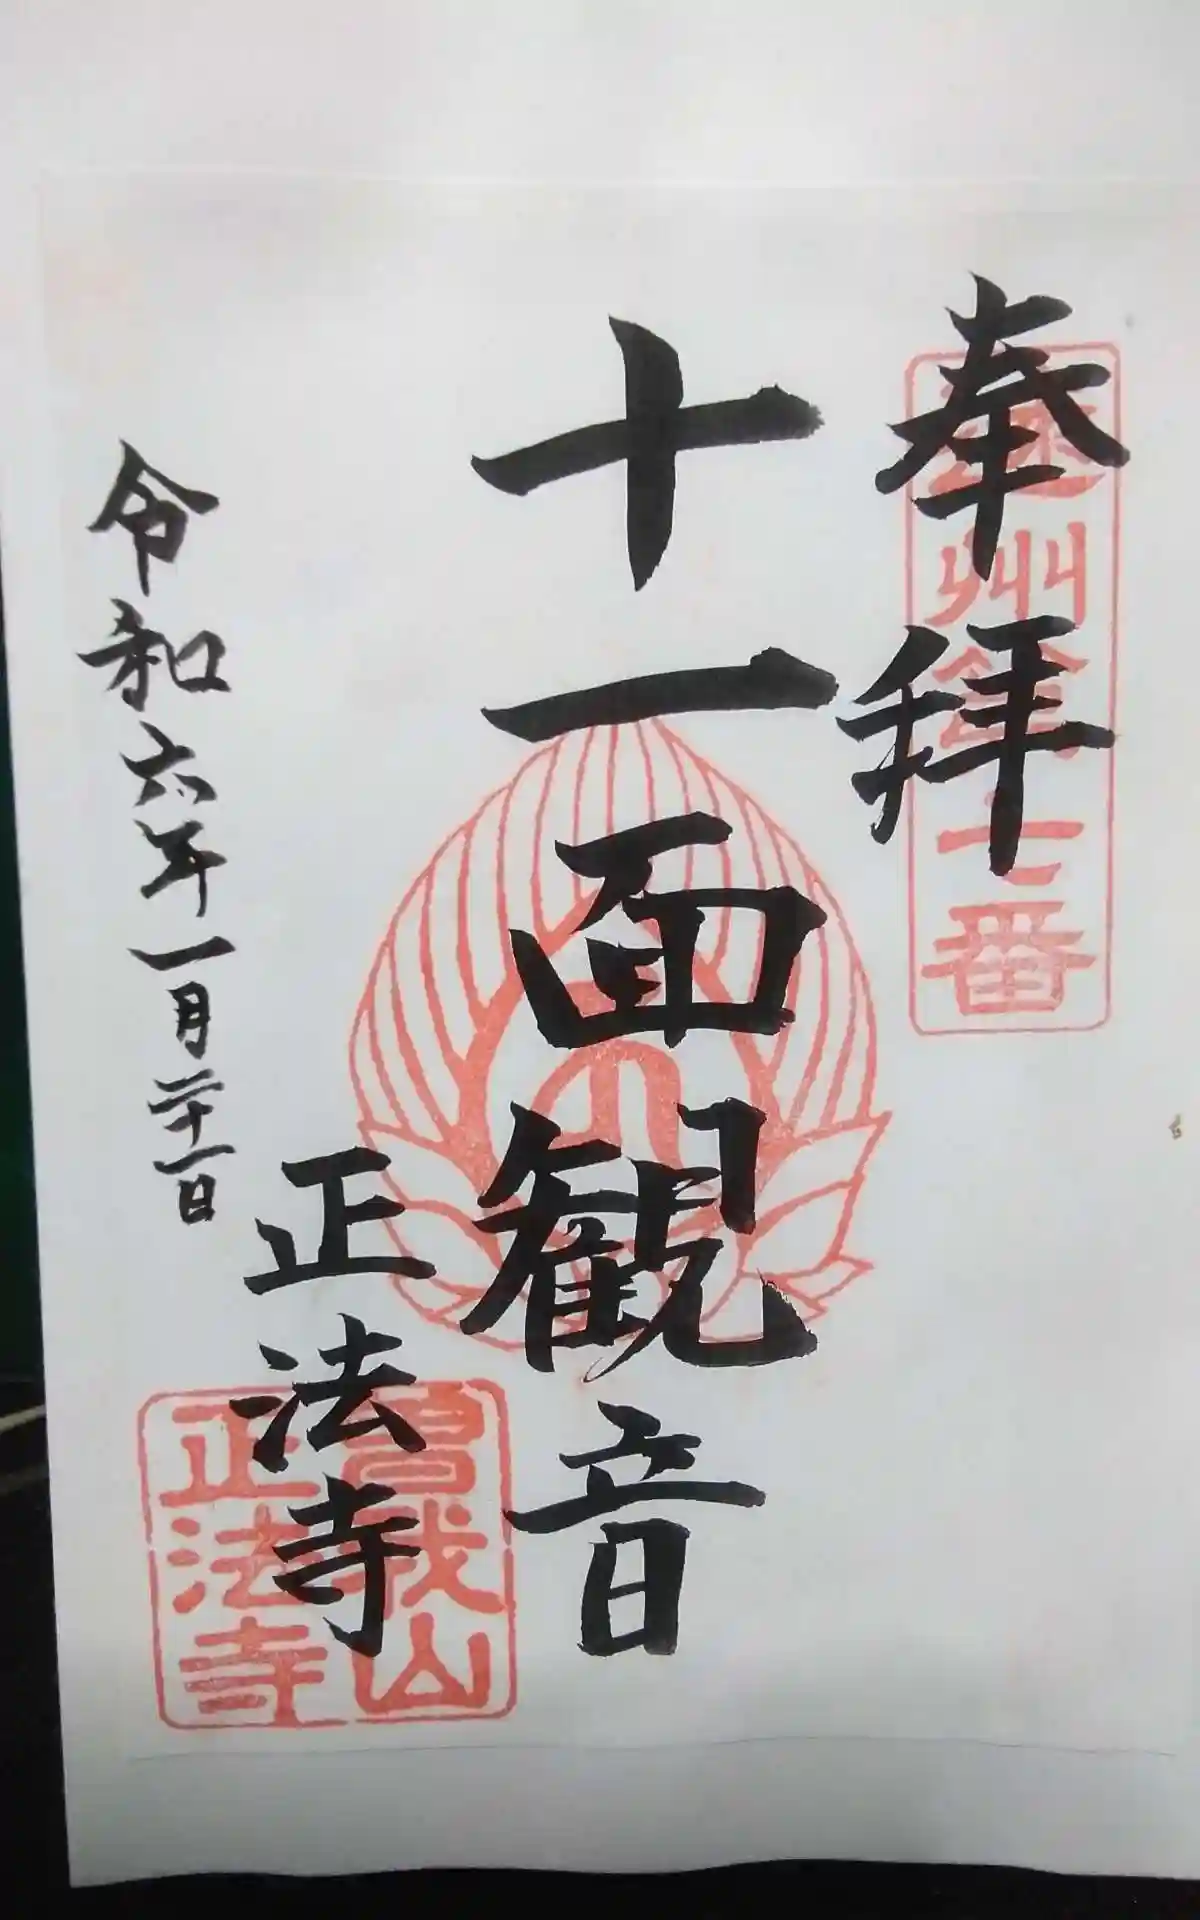 奉拝
遠州第七番
十一面観音
正法寺
曽我山
正法寺
令和六年一月二十一日